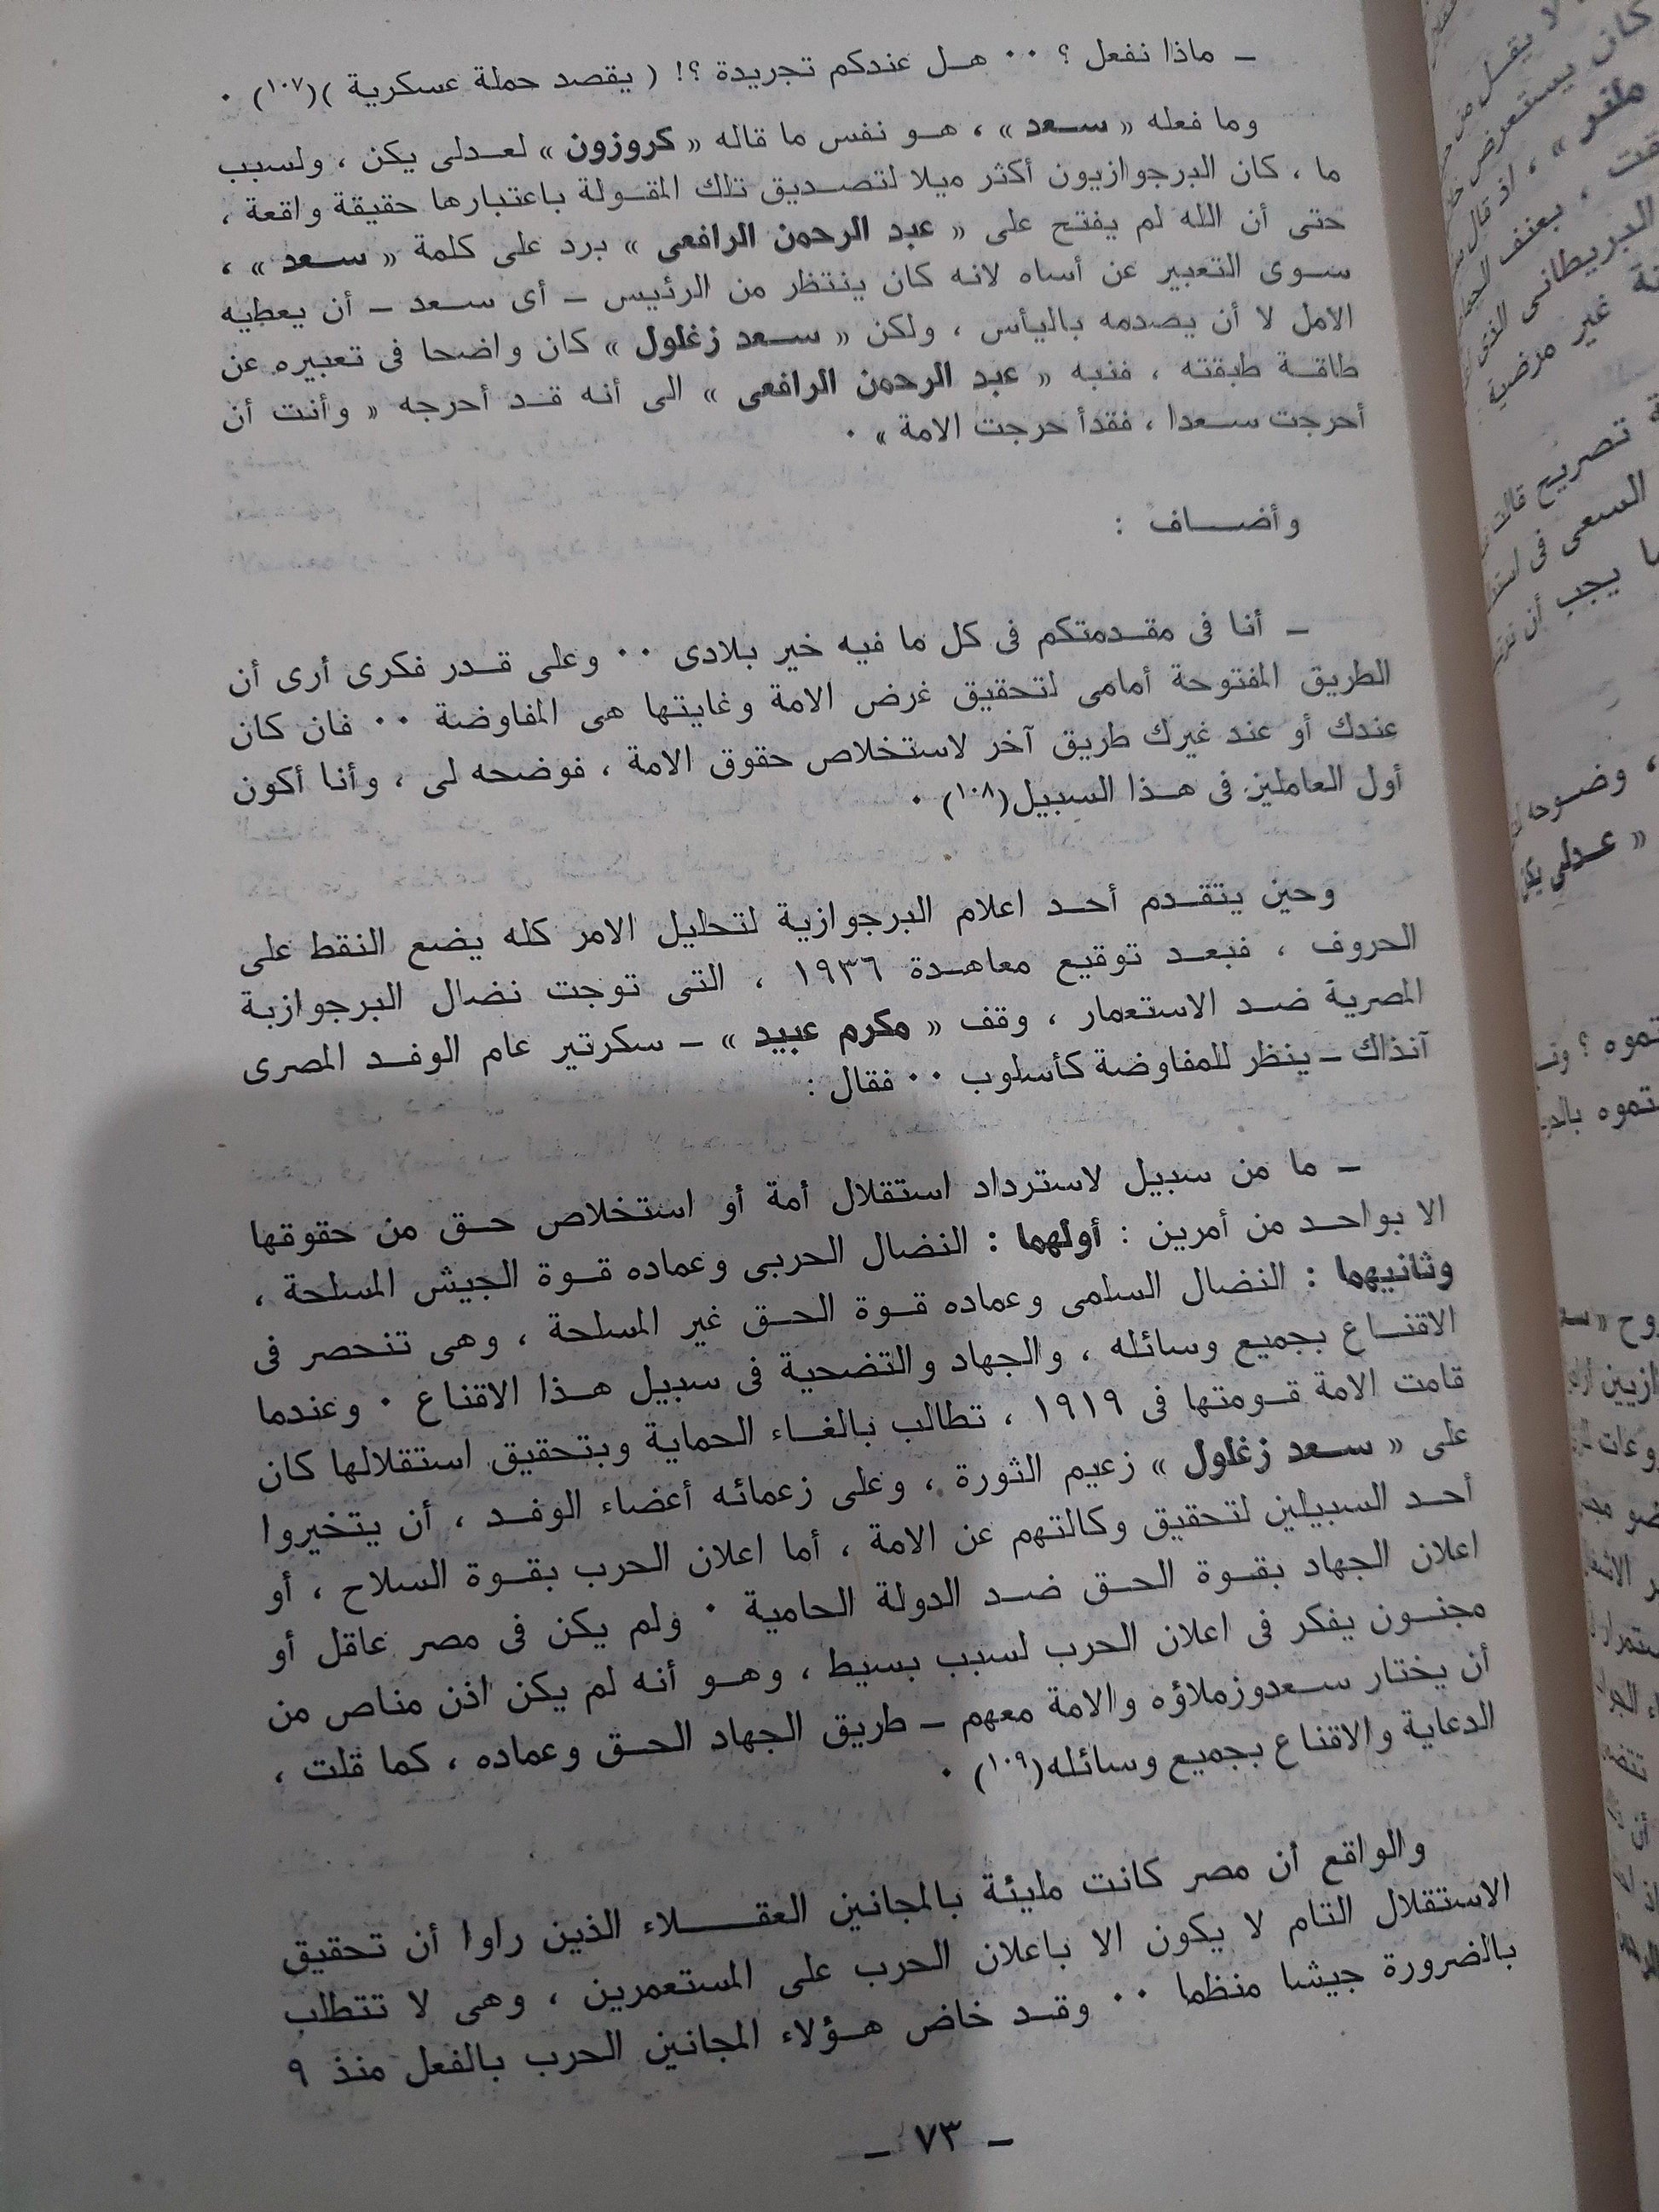 ـ ماذا نفعل ؟ ٠٠ هل عندكم تجريدة ؟! ( يقصد حملة عسكرية )(١٠٧) ٠
وما فعله « سعد » ، هو نفس ما قاله « كروزون » لعدلى يكن ، ولسبب
ما ، كان البرجوازيون أكثر ميلا لتصديق تلك المقولة باعتبارها حقيقة واقعة ،
حتى أن الله لم يفتح على « عبد الرحمن الرافعى » برد على كلمة « سعد » ،
سوى التعبير عن أساه لانه كان ينتظر من الرئيس ـ أى سعد ـ أن يعطيه
الامل لا أن يصدمه باليأس ، ولكن « سعد زغلول » كان واضحا فى تعبيره عن
طاقة طبقته ، فنبه « عبد الرحمن الرافعى » الى أنه قد أحرجه « وأنت أن
أحرجت سعدا ، فقدأ حرجت الامة » ٠
وأضاف :
ـ أنا فى مقدمتكم فى كل ما فيه خير بلادى ٠٠ وعلى قدر فكرى أرى أن
الطريق المفتوحة أمامى لتحقيق غرض الامة وغايتها هى المفاوضة ٠٠ فان كان
عندك أو عند غيرك طريق آخر لاستخلاص حقوق الامة ، فوضحه لى ، وأنا أكون
أول العاملين فى هذا السبيل(١٠٨) ٠
وحين يتقدم أحد اعلام البرجوازية لتحليل الامر كله يضع النقط على
الحروف ، فبعد توقيع معاهدة ١٩٣٦ ، التى توجت نضال البرجوازية
المصرية ضد الاستعمار ، وقف « مكرم عبيد » ـ سكرتير عام الوفد المصرى
آنذاك ـ ينظر للمفاوضة كأسلوب ٠٠ فقال :
ـ ما من سبيل لاسترداد استقلال أمة أو استخلاص حق من حقوقها
الا بواحد من أمرين : أولهما : النضال الحربى وعماده قوة الجيش المسلحة ،
وثانيهما : النضال السلمى وعماده قوة الحق غير المسلحة ، وهى تنحصر فى
الاقناع بجميع وسائله ، والجهاد والتضحية فى سبيل هذا الاقناع ٠ وعندما
قامت الامة قومتها فى ١٩١٩ ، تطالب بالغاء الحماية وبتحقيق استقلالها كان
على « سعد زغلول » زعيم الثورة ، وعلى زعمائه أعضاء الوفد ، أن يتخيروا
أحد السبيلين لتحقيق وكالتهم عن الامة ، أما اعلان الحرب بقوة السلاح ، أو
اعلان الجهاد بقوة الحق ضد الدولة الحامية ٠ ولم يكن فى مصر عاقل أو
مجنون يفكر فى اعلان الحرب لسبب بسيط ، وهو أنه لم يكن اذن مناص من
أن يختار سعدوزملاؤه والامة معهم ـ طريق الجهاد الحق وعماده ، كما قلت ،
الدعاية والاقناع بجميع وسائله(١٠٩) ٠
والواقع أن مصر كانت مليئة بالمجانين العقلاء الذين راوا أن تحقيق
الاستقلال التام لا يكون الا باعلان الحرب على المستعمرين ، وهى لا تتطلب
بالضرورة جيشا منظما ٠٠ وقد خاض هؤلاء المجانين الحرب بالفعل منذ ٩
ـ ٧٣ ـ